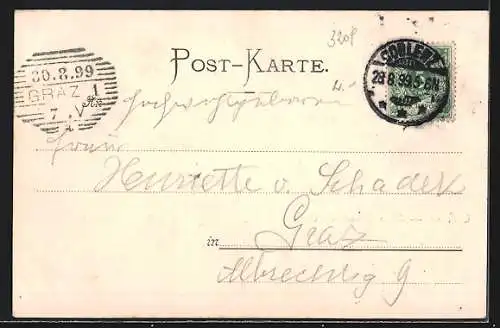 3208
POST-KARTE.
COBLENZ
28.8.99.5-6N
30.8.99
GRAZ 1
7 V
An Hochwohlgeboren
Frau
Henriette v. Schadek
in Graz
Albrechtg 9.